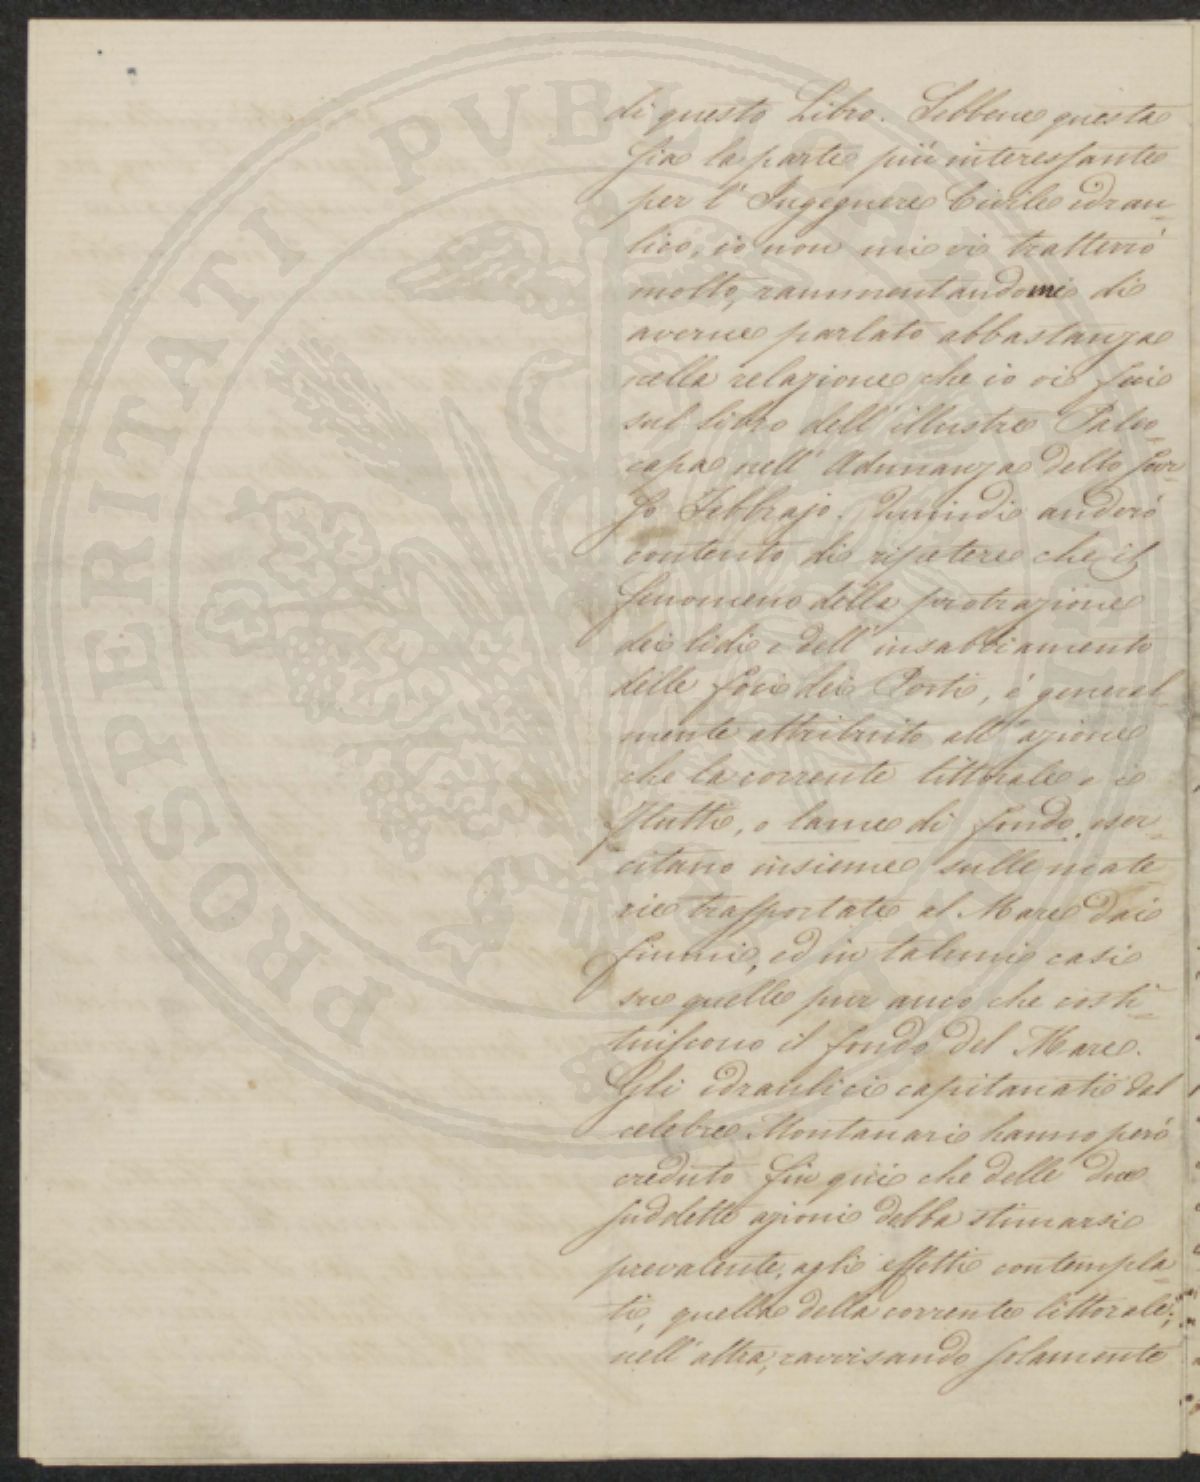 di questo Libro. Sebbene questa
sia la parte più interessante
per l'Ingegnere Civile idrau-
lico, io non mi vi tratterrò
molto, rammentandomi di
averne parlato abbastanza
nella relazione che io vi feci
sul libro dell'illustre Paleo-
capa nell'Adunanza dello scor-
so Febbrajo. Quindi anderò
contento di ripetere che il
fenomeno della protrazione
dei lidi e dell'insabbiamento
delle foci dei Porti, è general-
mente attribuito all'azione
che la corrente littorale e i
flutti, o lame di fondo, eser-
citano insieme sulle mate
rie trasportate al Mare dai
fiumi, ed in talune casi
su quelle pur anco che costi-
tuiscono il fondo del Mare.
Gli idraulici capitanati dal
celebre Montanari hanno però
creduto fin qui che delle due
suddette azioni debba stimarsi
prevalente, agli effetti contempla-
ti, quella della corrente littorale;
nell'altra, ravvisando solamente
PROSPERITATI PVBLICAE